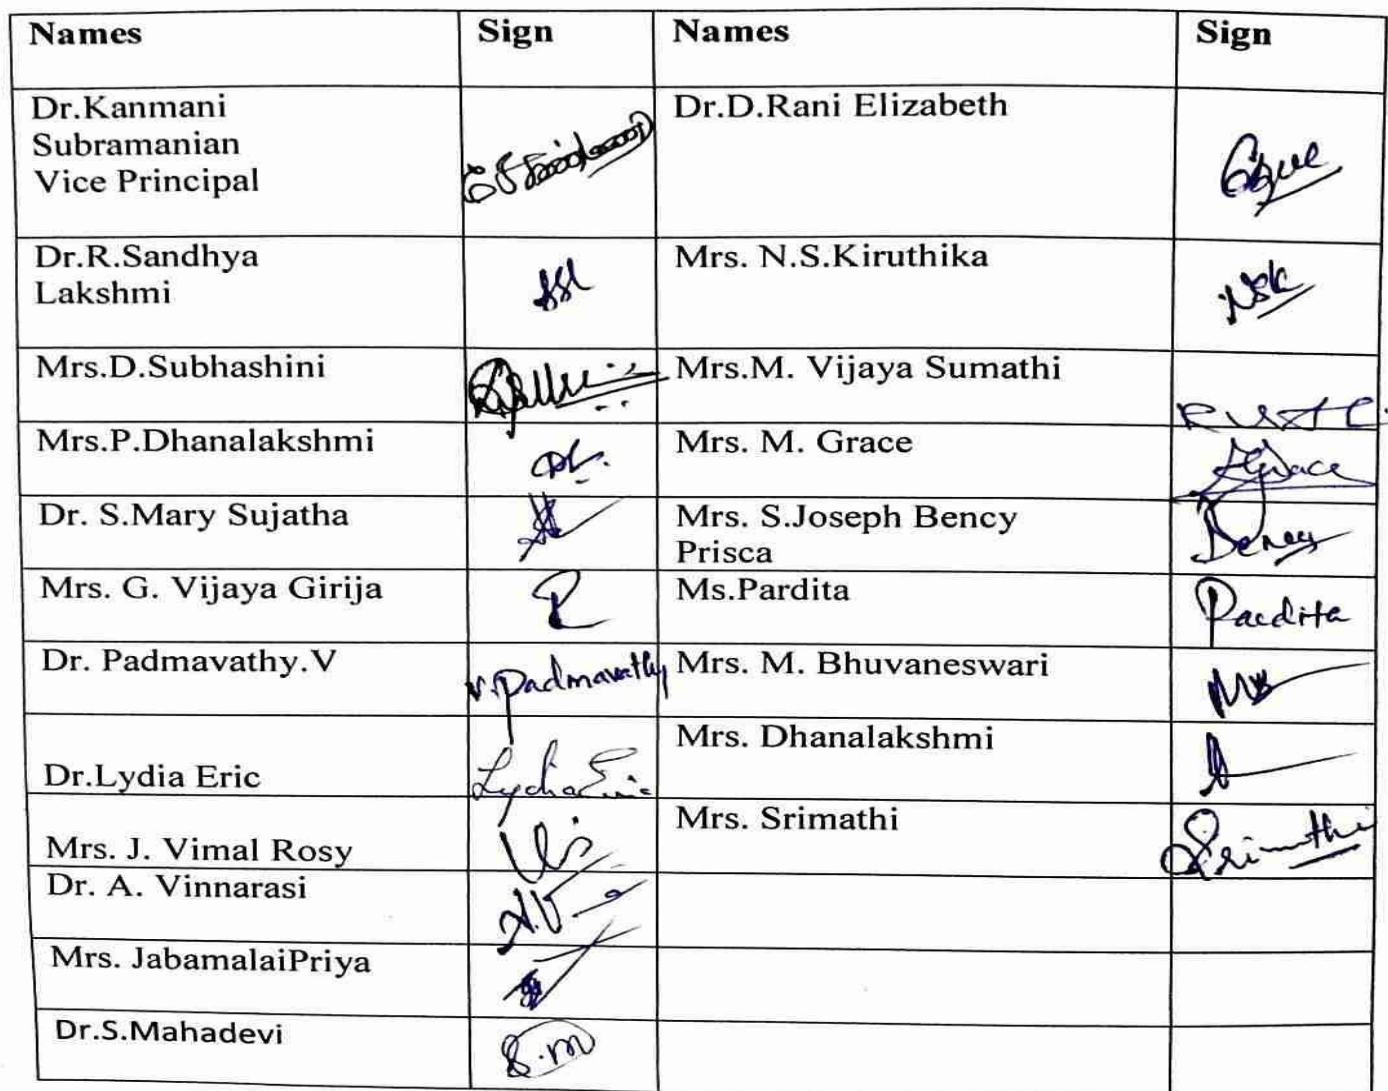 Names Sign Names Sign
Dr.Kanmani
Subramanian
Vice Principal
Dr.D.Rani Elizabeth
Dr.R.Sandhya
Lakshmi
Mrs. N.S.Kiruthika
NSK
Mrs.D.Subhashini
Mrs.M. Vijaya Sumathi
Mrs.P.Dhanalakshmi
Mrs. M. Grace
Grace
Dr. S.Mary Sujatha
Mrs. S.Joseph Bency
Prisca
Bency
Mrs. G. Vijaya Girija
Ms.Pardita
Pardita
Dr. Padmavathy.V
V.Padmavathy
Mrs. M. Bhuvaneswari
MB
Dr.Lydia Eric
Lydia Eric
Mrs. Dhanalakshmi
Mrs. J. Vimal Rosy
Mrs. Srimathi
Srimathi
Dr. A. Vinnarasi
A.V
Mrs. JabamalaiPriya
Dr.S.Mahadevi
S.M